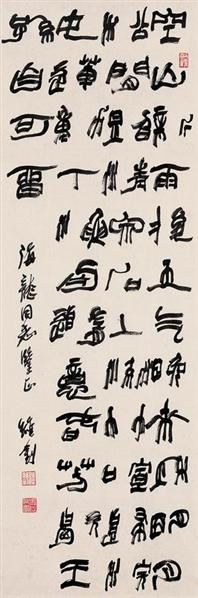 空山新雨後天气晚来秋明月
松間照清泉石上流竹喧歸浣
女蓮動下漁舟隨意春芳歇王
孫自可留
海龍同志鑒正 維釗